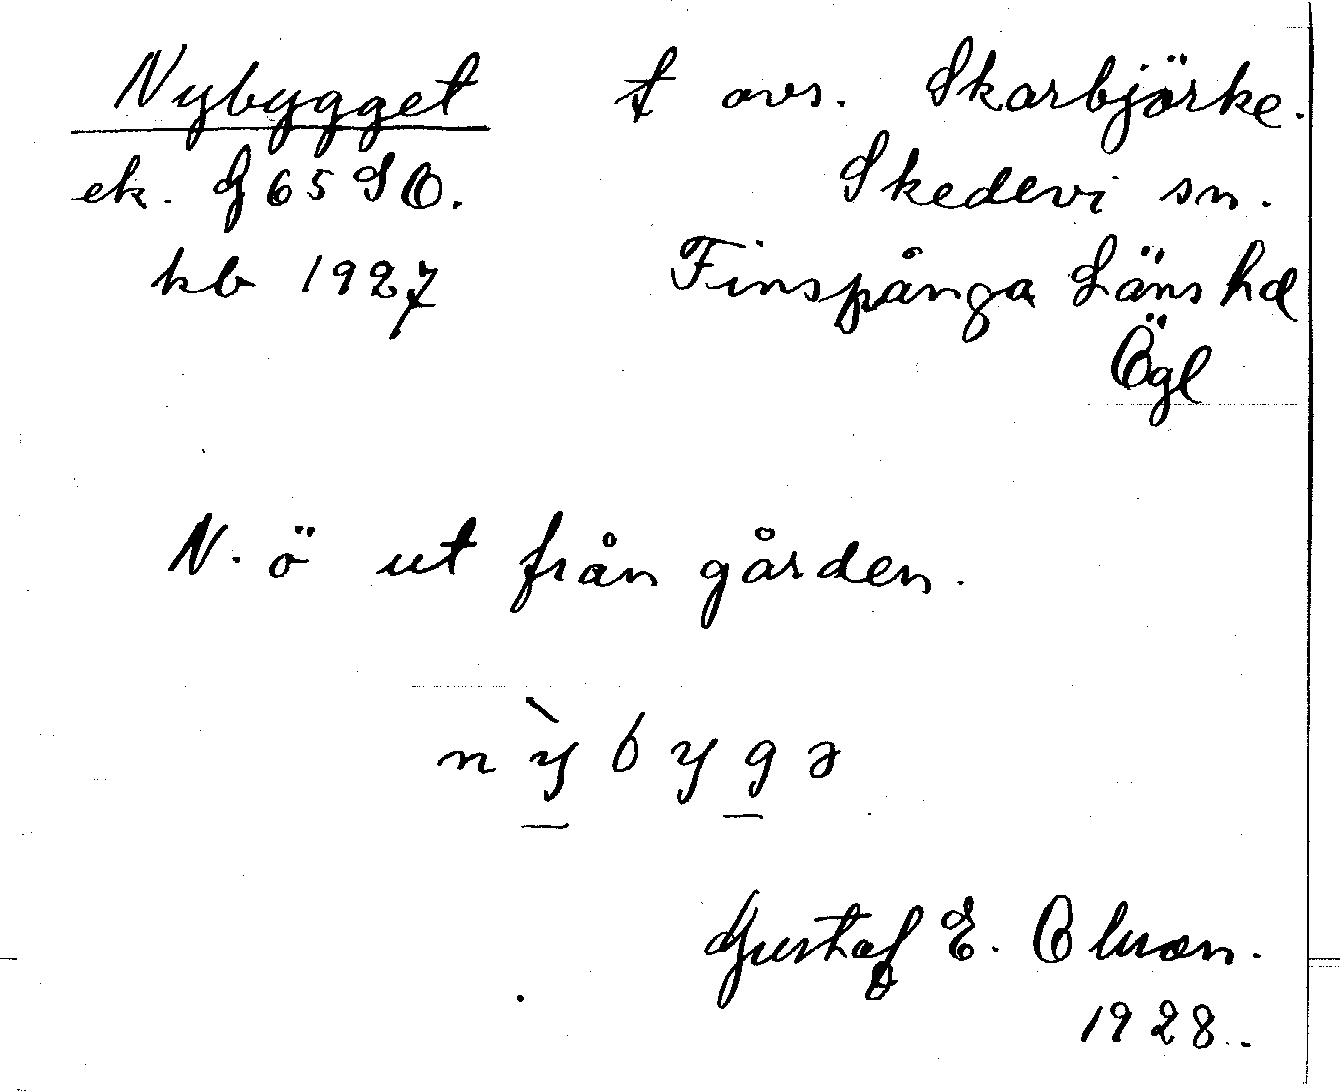 Nybygget t avs. Skarbjörke.
ek. G 65 SO. Skedevi sn.
kb 1927 Finspånga Läns hd
Ögl
N. ö ut från gården.
nỳbygə
Gustaf E. Olsson.
1928.